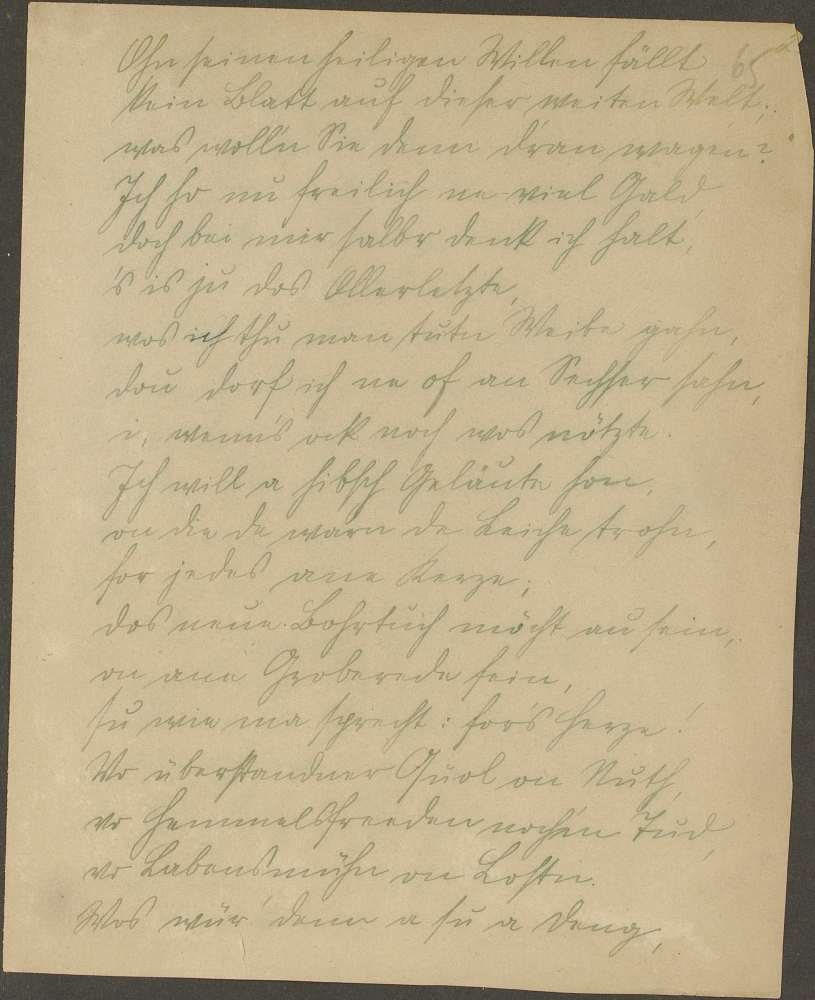 65
Ohn seinen heiligen Willen fällt
kein Blatt auf dieser weiten Welt;
was woll'n Sie denn d'ran wagen?
Ich ho nu freilich ne viel Gald,
doch bei mir salbr denk ich halt,
's is ju dos Ollerletzte,
wos ich thu man tutn Weibe gahn,
dou dorf ich ne of an Sechser sahn,
i, wenn's ock noch wos nötzte.
Ich will a hibsch Geläute hon,
on die de warn de Leiche trohn,
for jedes ane Kerze;
dos neue Bohrtuch möcht au sein,
on ane Groberede fein,
su wie ma sprecht: för's Herze!
Vo überstandner Quol on Nuth,
vo Hemmelsfreeden noch'n Tud,
vo Labensmühn on Lostn.
Wos wür' denn a su a Deng,